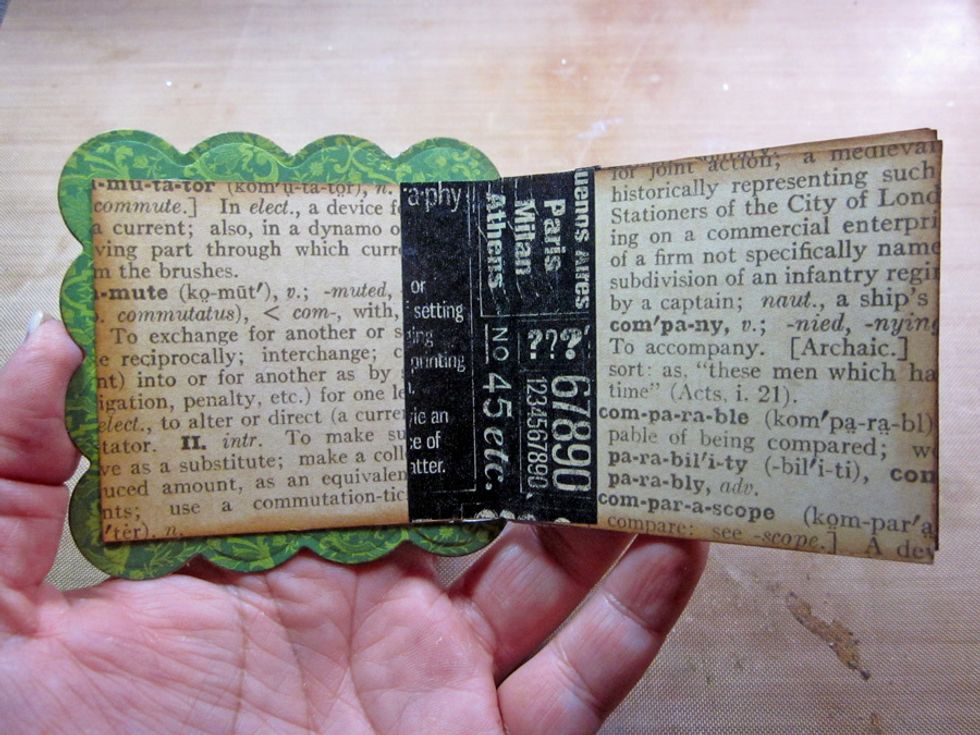 -mu-ta-tor (kom'ụ-tā-tọr), n.
commute.] In elect., a device f
a current; also, in a dynamo o
ving part through which curr
m the brushes.
-mute (kọ-mūt'), v.; -muted,
commutatus), < com-, with,
To exchange for another or s
e reciprocally; interchange; c
nt) into or for another as by
igation, penalty, etc.) for one le
elect., to alter or direct (a curre
tator. II. intr. To make su
ve as a substitute; make a coll
uced amount, as an equivalen
nts; use a commutation-tic
'tėr), n.
a·phy
or
setting
printing
an
ce of
atter.
Athens
Milan
Paris
uenos Aires
NO 45 etc.
???
1234567890
67890
for joint action; a medieval
historically representing such
Stationers of the City of Lond
ing on a commercial enterpri
of a firm not specifically name
subdivision of an infantry regi
by a captain; naut., a ship's
com'pa-ny, v.; -nied, -nying
To accompany. [Archaic.]
sort: as, "these men which ha
time" (Acts, i. 21).
com-pa-ra-ble (kom'pa-ra-bl)
pable of being compared; w
pa-ra-bil'i-ty (-bil'i-ti), com
pa-ra-bly, adv.
com-par-a-scope (kom-par'a
compare: see -scope.] A dev